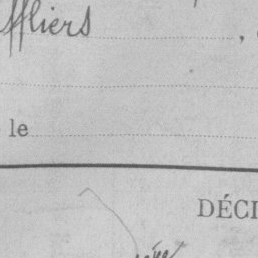 ffliers ,
le
DÉCI